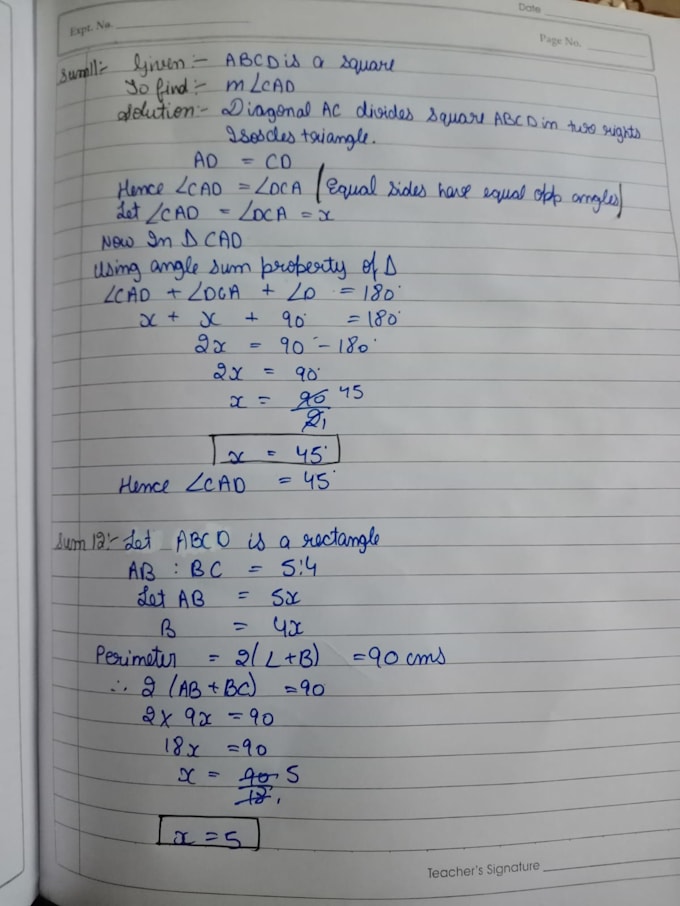 Date
Expt. No.
Page No.
Sum11:- Given :- ABCD is a square
To find :- m∠CAD
Solution:- Diagonal AC divides square ABCD in two rights
Isoscles triangle.
AD = CD
Hence ∠CAD = ∠DCA (Equal sides have equal opp angles)
Let ∠CAD = ∠DCA = x
Now In Δ CAD
Using angle sum property of Δ
∠CAD + ∠DCA + ∠D = 180°
x + x + 90° = 180°
2x = 90° - 180°
2x = 90°
x = 90 45
2 1
x = 45°
Hence ∠CAD = 45°
Sum 12:- Let ABCD is a rectangle
AB : BC = 5:4
Let AB = 5x
B = 4x
Perimeter = 2(L+B) = 90 cms
∴ 2 (AB + BC) = 90
2 x 9x = 90
18x = 90
x = 90 5
18 1
x = 5
Teacher's Signature